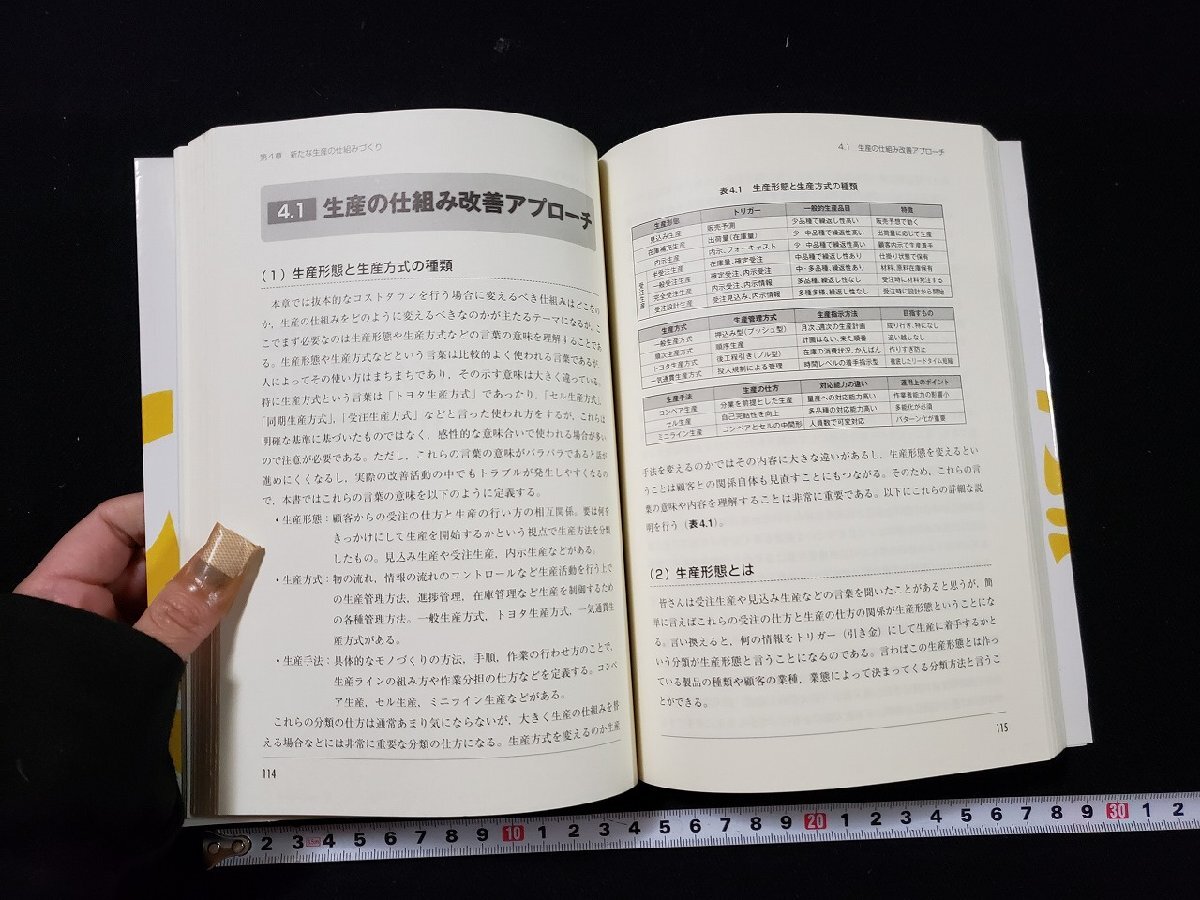 第4章 新たな生産の仕組みづくり
4.1 生産の仕組み改善アプローチ
(1) 生産形態と生産方式の種類
本章では抜本的なコストダウンを行う場合に変えるべき仕組みはどこなの
か、生産の仕組みをどのように変えるべきなのかが主たるテーマになるが、こ
こでまず必要なのは生産形態や生産方式などの言葉の意味を理解することであ
る。生産形態や生産方式などという言葉は比較的よく使われる言葉であるが、
人によってその使い方はまちまちであり、その示す意味は大きく違っている。
特に生産方式という言葉は「トヨタ生産方式」であったり、「セル生産方式」
「同期生産方式」、「受注生産方式」などと言った使われ方をするが、これらは
明確な基準に基づいたものではなく、感性的な意味合いで使われる場合が多い
ので注意が必要である。ただし、これらの言葉の意味がバラバラであると話が
進めにくくなるし、実際の改善活動の中でもトラブルが発生しやすくなるの
で、本書ではこれらの言葉の意味を以下のように定義する。
・生産形態：顧客からの受注の仕方と生産の行い方の相互関係。要は何を
きっかけにして生産を開始するかという視点で生産方法を分類
したもの。見込み生産や受注生産、内示生産などがある。
・生産方式：物の流れ、情報の流れのコントロールなど生産活動を行う上で
の生産管理方法、進捗管理、在庫管理など生産を制御するため
の各種管理方法。一般生産方式、トヨタ生産方式、一気通貫生
産方式がある。
・生産手法：具体的なモノづくりの方法、手順、作業の行わせ方のことで、
生産ラインの組み方や作業分担の仕方などを定義する。コンベ
ア生産、セル生産、ミニライン生産などがある。
これらの分類の仕方は通常あまり気にならないが、大きく生産の仕組みを替
える場合などには非常に重要な分類の仕方になる。生産方式を変えるのか生産
114
4.1 生産の仕組み改善アプローチ
表4.1 生産形態と生産方式の種類
生産形態 トリガー 一般的生産品目 特徴
見込み生産 販売予測 少品種で繰返し性高い 販売予想で動く
在庫補充生産 出荷量(在庫量) 少・中品種で繰返性高い 出荷量に応じて生産
内示生産 内示、フォーキャスト 少・中品種で繰返し性高い 顧客内示で生産着手
受注生産 半受注生産 在庫量、確定受注 中品種で繰返し性あり 仕掛り状態で保有
一般受注生産 確定受注、内示受注 中・多品種、繰返し性あり 材料、原料在庫保有
完全受注生産 内示受注、内示情報 多品種、繰返し性なし 受注時に材料発注する
受注設計生産 受注見込み、内示情報 多種多様、繰返し性なし 受注時に設計から開始
生産方式 生産管理方式 生産指示方法 目指すもの
一般生産方式 押込み型(プッシュ型) 月次、週次の生産計画 成り行き、特になし
順次生産方式 順序生産 計画はない、来た順番 追い越しなし
トヨタ生産方式 後工程引き(プル型) 在庫の消費状況、かんばん 作りすぎ防止
一気通貫生産方式 投入規制による管理 時間レベルの着手指示型 徹底したリードタイム短縮
生産手法 生産の仕方 対応能力の違い 運用上のポイント
コンベア生産 分業を前提とした生産 量産への対応能力高い 作業者能力の影響小
セル生産 自己完結性を向上 多品種の対応能力高い 多能化が必須
ミニライン生産 コンベアとセルの中間形 人員数で可変対応 パターン化が重要
手法を変えるのかではその内容に大きな違いがあるし、生産形態を変えるとい
うことは顧客との関係自体も見直すことにもつながる。そのため、これらの言
葉の意味や内容を理解することは非常に重要である。以下にこれらの詳細な説
明を行う（表4.1）。
(2) 生産形態とは
皆さんは受注生産や見込み生産などの言葉を聞いたことがあると思うが、簡
単に言えばこれらの受注の仕方と生産の仕方の関係が生産形態ということにな
る。言い換えると、何の情報をトリガー（引き金）にして生産に着手するかと
いう分類が生産形態と言うことになるのである。言わばこの生産形態とは作っ
ている製品の種類や顧客の業種、業態によって決まってくる分類方法と言うこ
とができる。
115
2 3 4 5 6 7 8 9 10 1 2 3 4 5 6 7 8 9 20 1 2 3 4 5 6 7 8 9 30 1 2